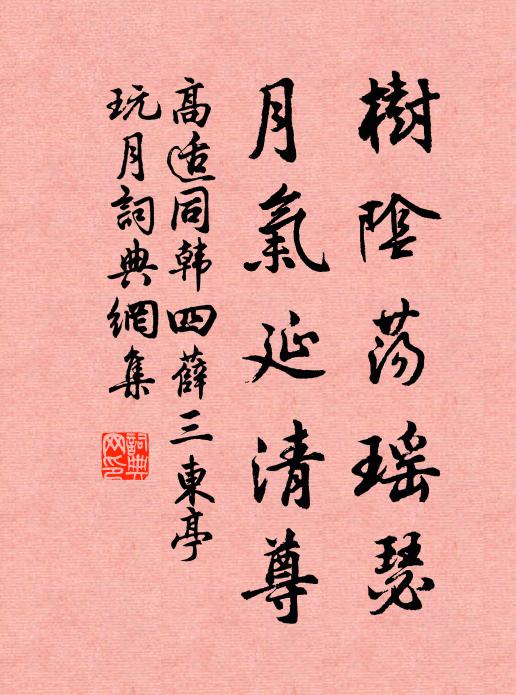 樹陰蕩瑤瑟
月氣延清尊
高适同韩四薛三東亭
玩月詞典網集
詞典网印